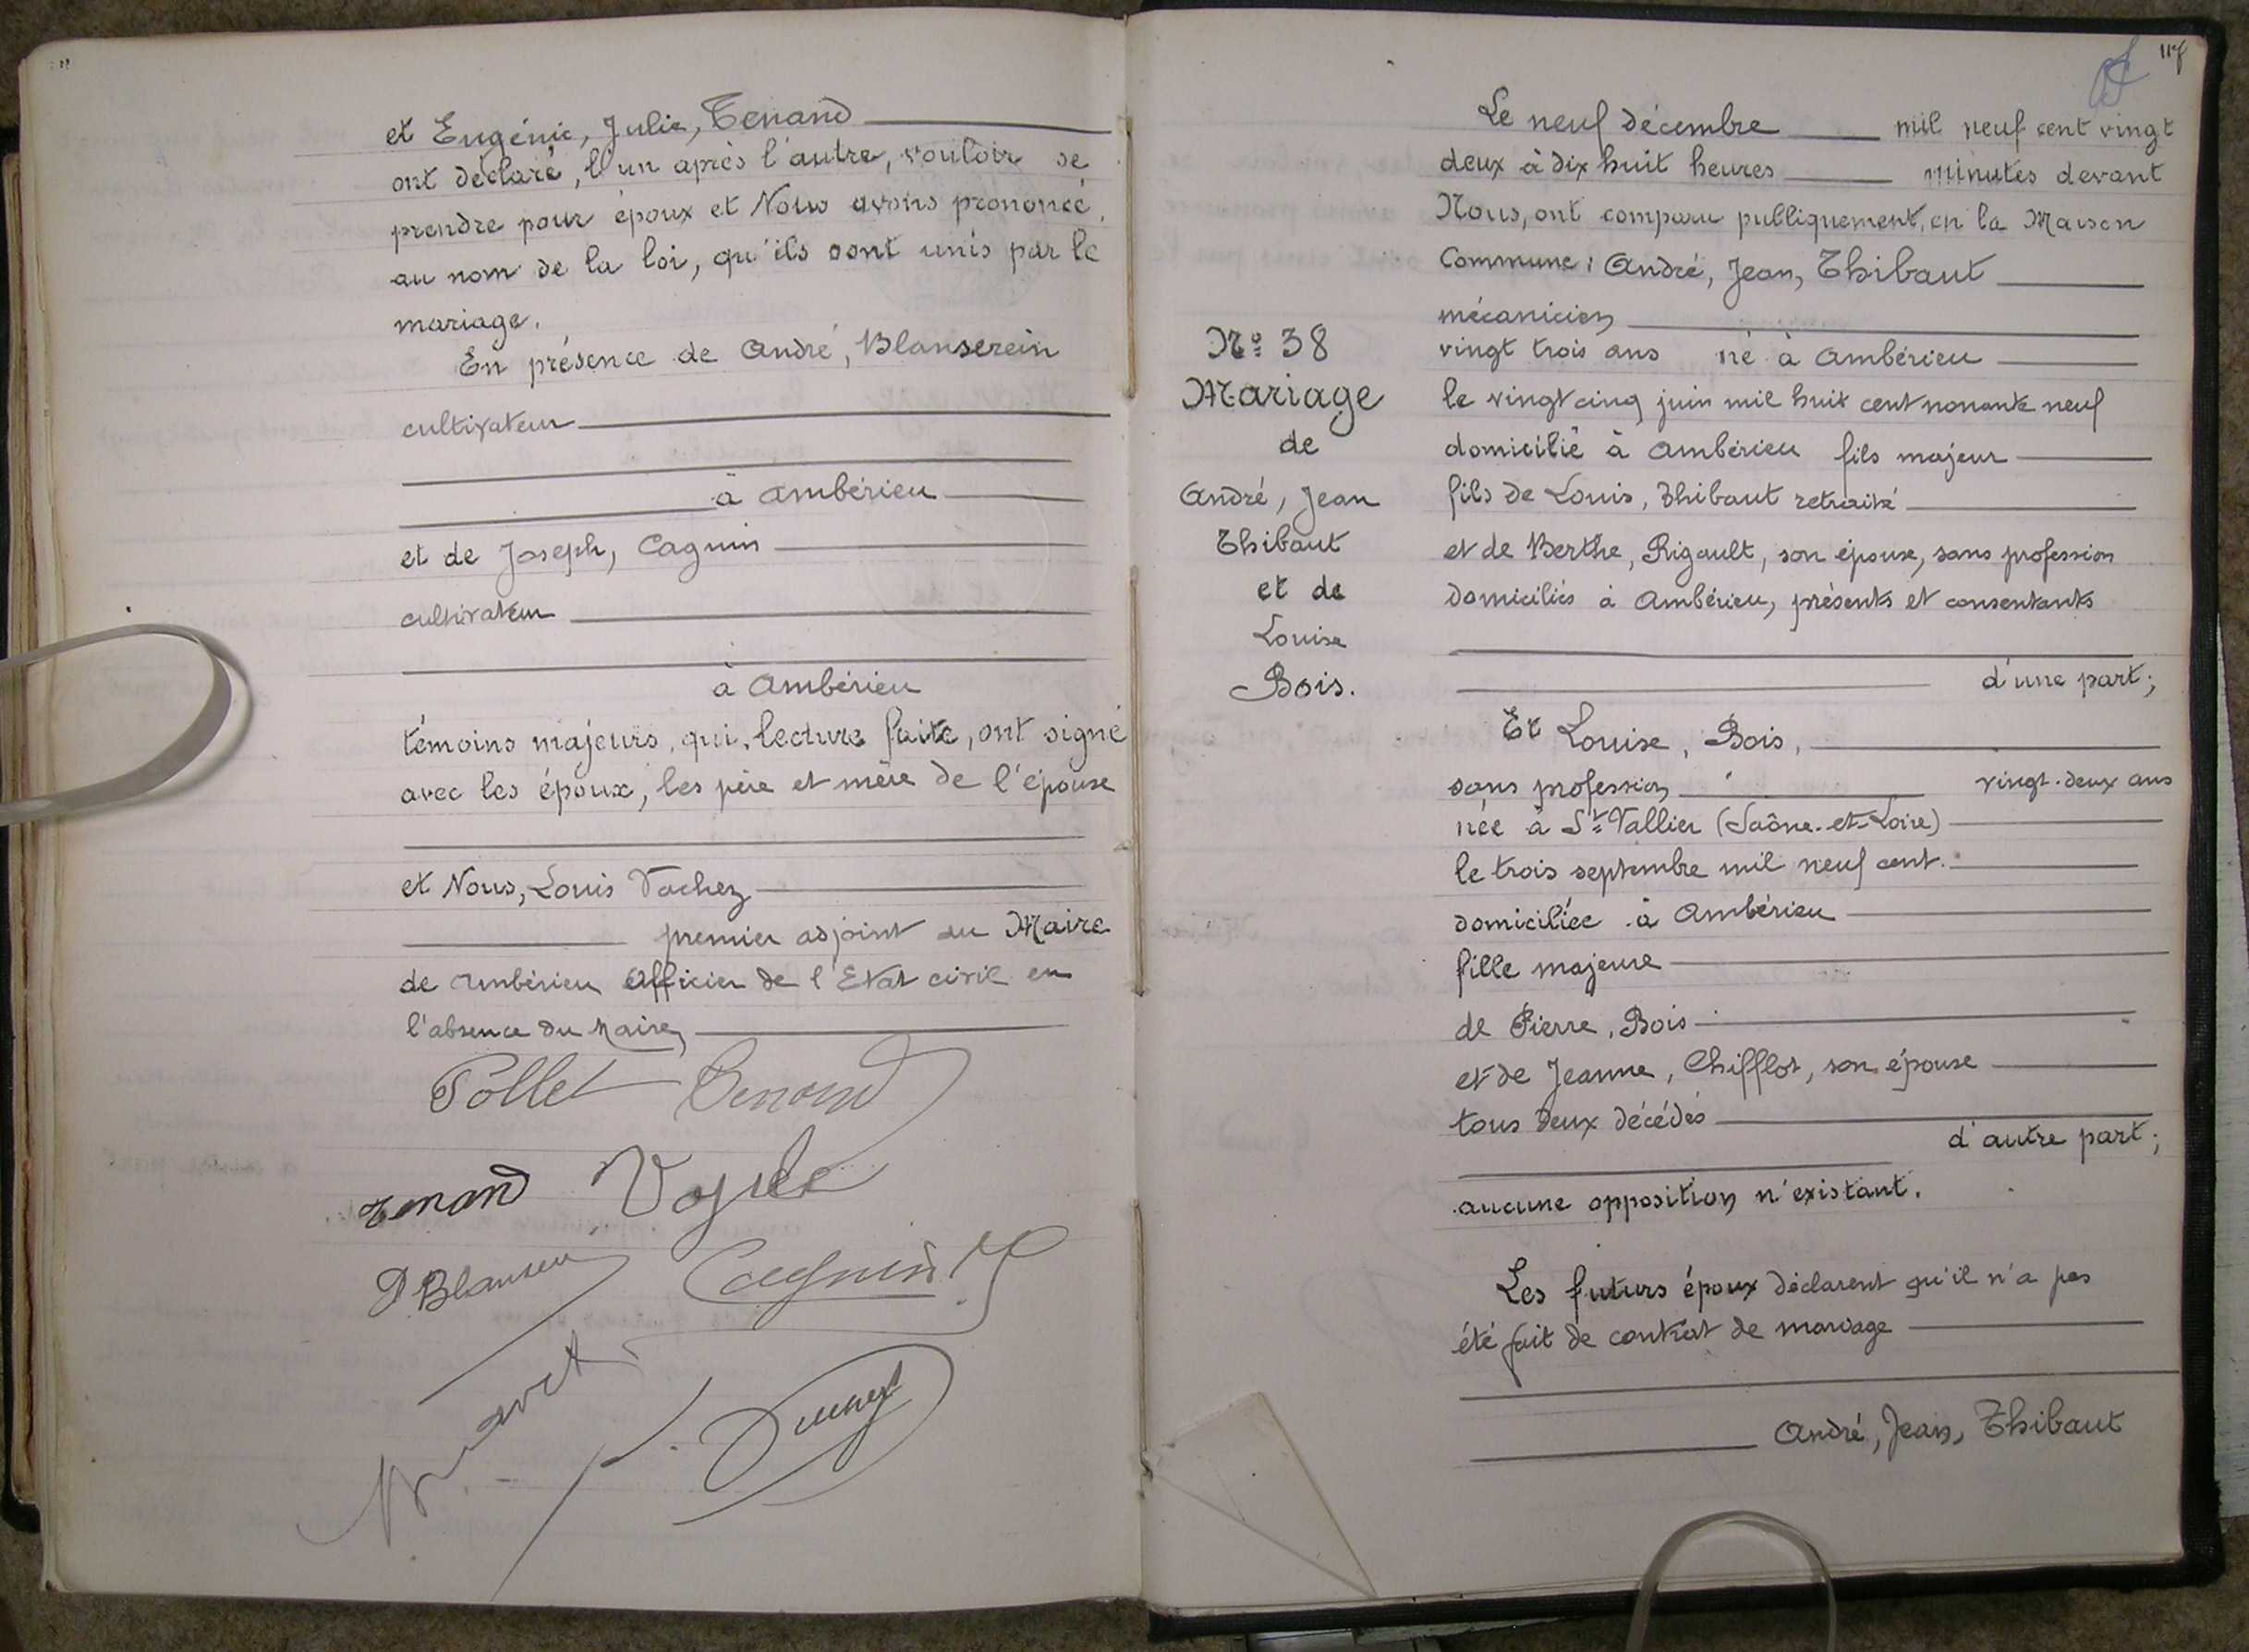 et Eugénie, Julie, Tenand
ont déclaré, l'un après l'autre, vouloir se
prendre pour époux et Nous avons prononcé,
au nom de la loi, qu'ils sont unis par le
mariage.
En présence de André, Blanserein
cultivateur
à Ambérieu
et de Joseph, Cagnin
cultivateur
à Ambérieu
témoins majeurs, qui, lecture faite, ont signé
avec les époux, les père et mère de l'épouse
et Nous, Louis Vachez
premier adjoint au Maire
de Ambérieu Officier de l'Etat civil en
l'absence du Maire
Pollet Tenand
Tenand
Cagnin
117
Le neuf décembre mil neuf cent vingt
deux à dix huit heures minutes devant
Nous, ont comparu publiquement, en la Maison
Commune : André, Jean, Thibaut
mécanicien
vingt trois ans né à Ambérieu
le vingt cinq juin mil huit cent nonante neuf
domicilié à Ambérieu fils majeur
fils de Louis, Thibaut retraité
et de Berthe, Rigault, son épouse, sans profession
domiciliés à Ambérieu, présents et consentants
d'une part;
Nº 38
Mariage
de
André, Jean
Thibaut
et de
Louise
Bois.
Et Louise, Bois,
sans profession vingt-deux ans
née à St Vallier (Saône-et-Loire)
le trois septembre mil neuf cent.
domiciliée à Ambérieu
fille majeure
de Pierre, Bois
et de Jeanne, Chifflot, son épouse
tous deux décédés
d'autre part;
aucune opposition n'existant.
Les futurs époux déclarent qu'il n'a pas
été fait de contrat de mariage
André, Jean, Thibaut